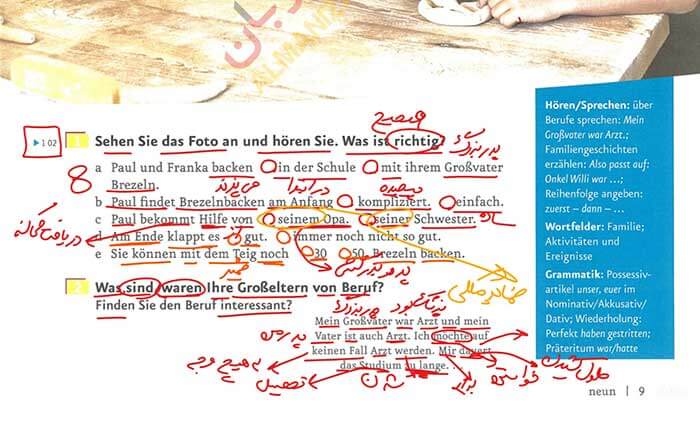 زبان
ALMANI
▶ 1 02
1 Sehen Sie das Foto an und hören Sie. Was ist richtig?
صحیح
پدربزرگ
8
a Paul und Franka backen ○ in der Schule ○ mit ihrem Großvater
Brezeln.
می‌پزند
در ابتدا
پیچیده
b Paul findet Brezelnbacken am Anfang ○ kompliziert. ○ einfach.
c Paul bekommt Hilfe von ○ seinem Opa. ○ seiner Schwester.
d Am Ende klappt es ○ gut. ○ immer noch nicht so gut.
e Sie können mit dem Teig noch ○ 30 ○ 50 Brezeln backen.
خمیر
2 Was sind/waren Ihre Großeltern von Beruf?
Finden Sie den Beruf interessant?
Mein Großvater war Arzt und mein
Vater ist auch Arzt. Ich möchte auf
keinen Fall Arzt werden. Mir dauert
das Studium zu lange. ...
به هیچ وجه
تحصیل
خواستن
طول کشیدن
Hören/Sprechen: über
Berufe sprechen: Mein
Großvater war Arzt.;
Familiengeschichten
erzählen: Also passt auf:
Onkel Willi war ...;
Reihenfolge angeben:
zuerst – dann – ...
Wortfelder: Familie;
Aktivitäten und
Ereignisse
Grammatik: Possessiv-
artikel unser, euer im
Nominativ/Akkusativ/
Dativ; Wiederholung:
Perfekt haben gestritten;
Präteritum war/hatte
neun | 9